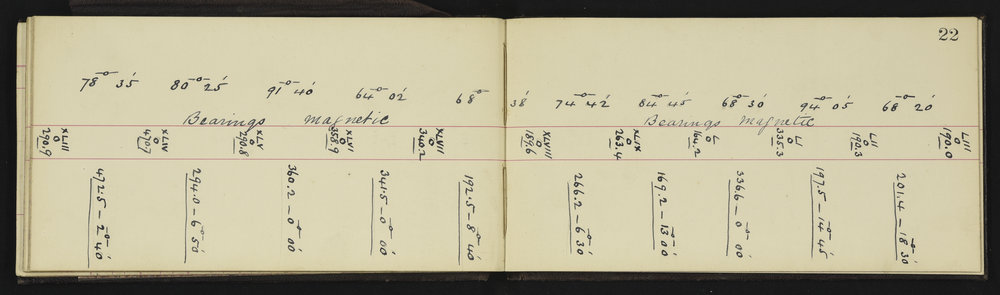 22
78° 35' 80° 25' 91° 40' 64° 02' 68° 38' 74° 42' 84° 45' 68° 30' 94° 05' 68° 20'
Bearings magnetic Bearings Magnetic
XLIII O 290.9
XLIV O 470.7
XLV O 290.8
XLVI O 353.9
XLVII O 340.2
XLVIII O 189.6
XLIX O 263.4
L O 164.2
LI O 335.3
LII O 190.3
LIII O 190.0
472.5 – 2° 40'
294.0 – 6° 50'
360.2 – 0° 00'
341.5 – 0° 00'
192.5 – 8° 40'
266.2 – 6° 30'
169.2 – 13° 00'
336.6 – 0° 00'
197.5 – 14° 45'
201.4 – 18° 30'